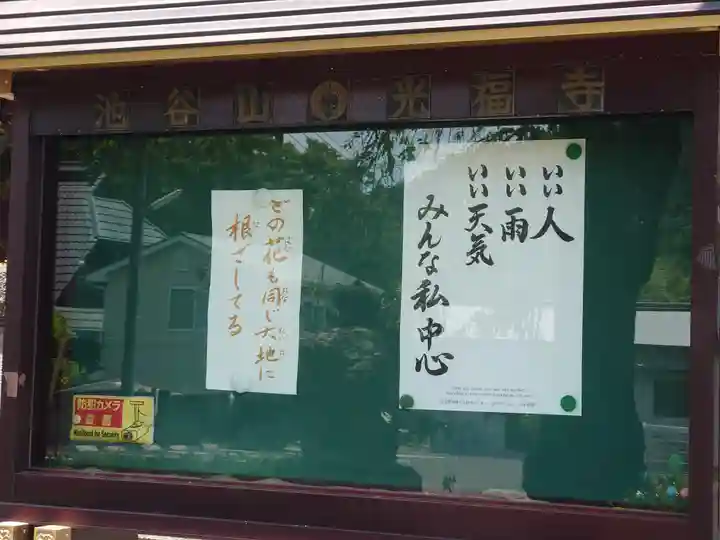 池谷山 光福寺
いい人
いい雨
いい天気
みんな私中心
どの花も同じ大地に
根ざしてる
防犯カメラ